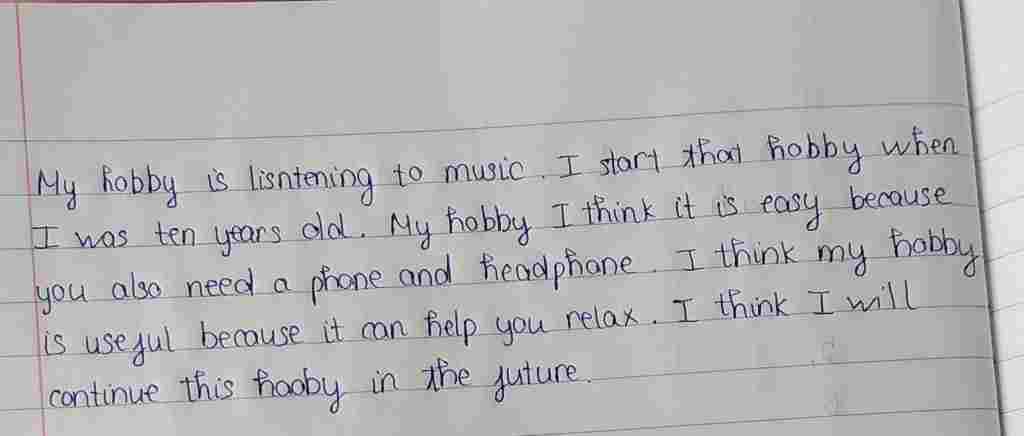 My hobby is lisntening to music. I start that hobby when
I was ten years old. My hobby I think it is easy because
you also need a phone and headphone. I think my hobby
is useful because it can help you relax. I think I will
continue this hooby in the future.